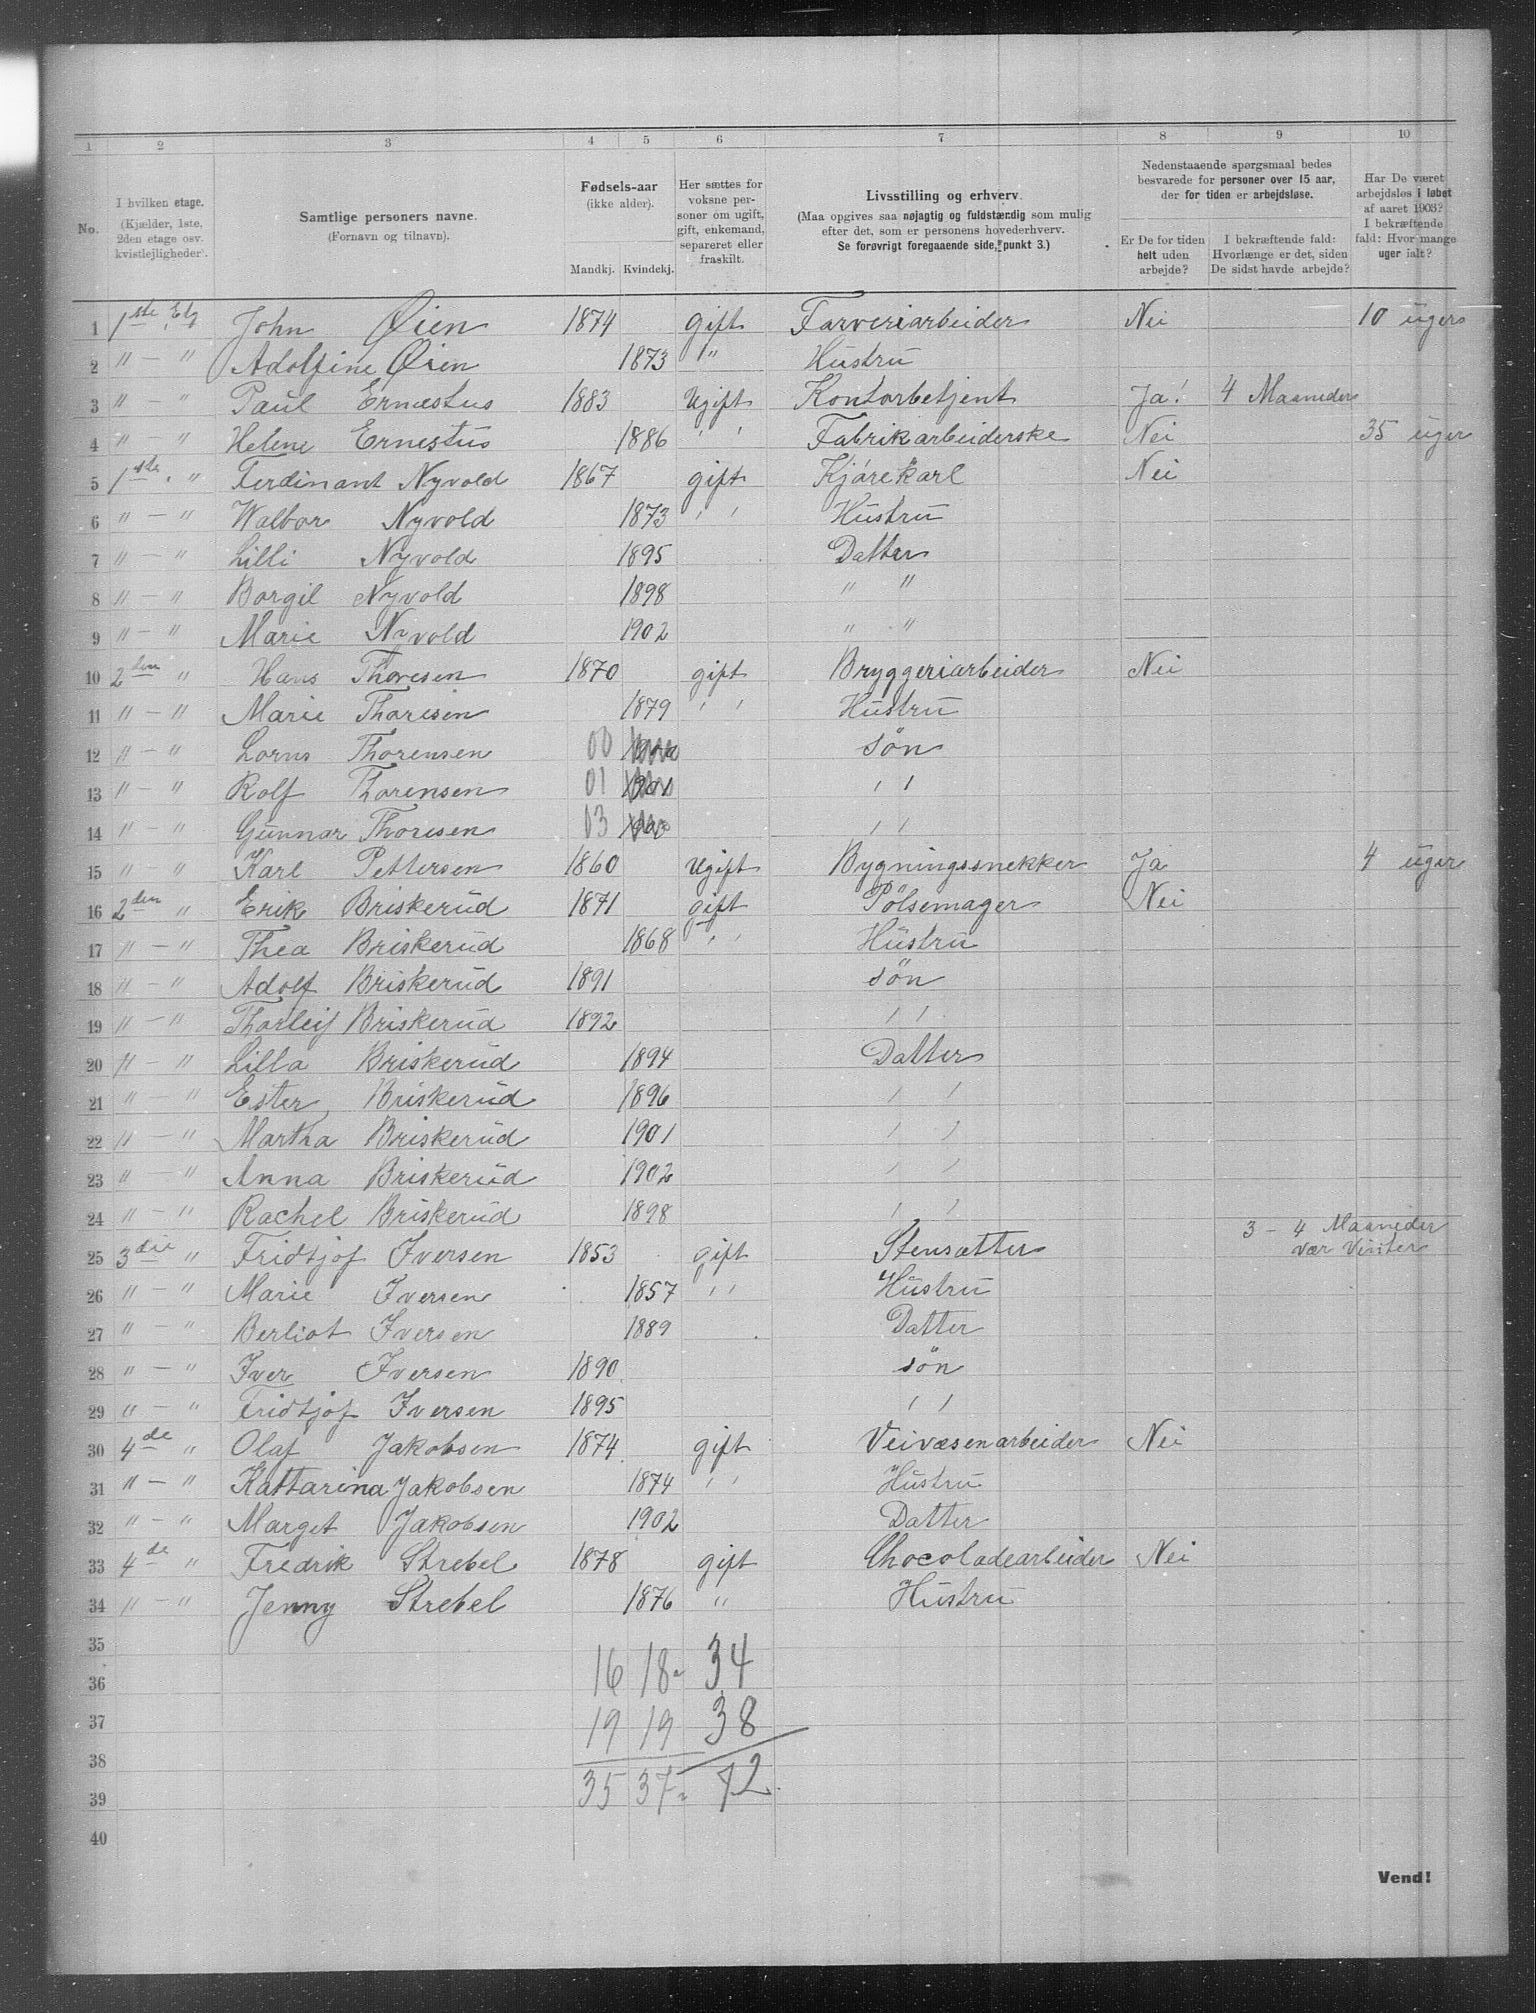 1 2 3 4 5 6 7 8 9 10
No.
I hvilken etage.
(Kjælder, 1ste,
2den etage osv.
kvistlejligheder).
Samtlige personers navne.
(Fornavn og tilnavn).
Fødsels-aar
(ikke alder).
Mandkj. Kvindekj.
Her sættes for
voksne per-
soner om ugift,
gift, enkemand,
separeret eller
fraskilt.
Livsstilling og erhverv.
(Maa opgives saa nøjagtig og fuldstændig som mulig
efter det, som er personens hovederhverv.
Se forøvrigt foregaaende side, punkt 3.)
Nedenstaaende spørgsmaal bedes
besvarede for personer over 15 aar,
der for tiden er arbejdsløse.
Er De for tiden
helt uden
arbejde?
I bekræftende fald:
Hvorlænge er det, siden
De sidst havde arbejde?
Har De været
arbejdsløs i løbet
af aaret 1903?
I bekræftende
fald: Hvor mange
uger ialt?
1 1ste Etg John Øien 1874 gift Farveriarbeider Nei 10 uger
2 " — " Adolfine Øien 1873 " Hustru
3 " — " Paul Ernæstus 1883 Ugift Kontorbetjent Ja! 4 Maaneder
4 " — " Helene Ernestus 1886 ' ' Fabrikarbeiderske Nei 35 uger
5 1ste " Ferdinant Nyvold 1867 gift Kjórekarl Nei
6 " — " Walbor Nyvold 1873 ' ' Hustru
7 " — " Lilli Nyvold 1895 Datter
8 " — " Borgil Nyvold 1898 " "
9 " — " Marie Nyvold 1902 " "
10 2den " Hans Thoresen 1870 gift Bryggeriarbeider Nei
11 " — " Marie Thoresen 1879 ' ' Hustru
12 " — " Lorns Thorensen 00 søn
13 " — " Rolf Thorensen 01 ' '
14 " — " Gunnar Thoresen 03 ' '
15 " " Karl Pettersen 1860 Ugift Bygningssnekker Ja 4 uger
16 2den " Erik Briskerud 1871 gift Pölsemager Nei
17 " — " Thea Briskerud 1868 ' ' Hustru
18 " — " Adolf Briskerud 1891 sön
19 " — " Thorleif Briskerud 1892 ' '
20 " — " Lilla Briskerud 1894 Datter
21 " — " Ester Briskerud 1896 ' '
22 " — " Martha Briskerud 1901 ' '
23 " — " Anna Briskerud 1902 ' '
24 " — " Rachel Briskerud 1898 ' '
25 3die " Fridtjof Iversen 1853 gift Stensætter 3 - 4 Maaneder
vær Vinter
26 " — " Marie Iversen 1857 ' ' Hustru
27 " — " Berliot Iversen 1889 Datter
28 " — " Iver Iversen 1890 sön
29 " — " Fridtjof Iversen 1895 ' '
30 4de " Olaf Jakobsen 1874 gift Veivæsenarbeider Nei
31 " — " Kattarina Jakobsen 1874 ' ' Hustru
32 " — " Marget Jakobsen 1902 Datter
33 4de " Fredrik Strebel 1878 gift Chocoladearbeider Nei
34 " — " Jenny Strebel 1876 " Hustru
35
36 16 18 - 34
37 19 19 38
38
39 35 37 - 72
40
Vend!